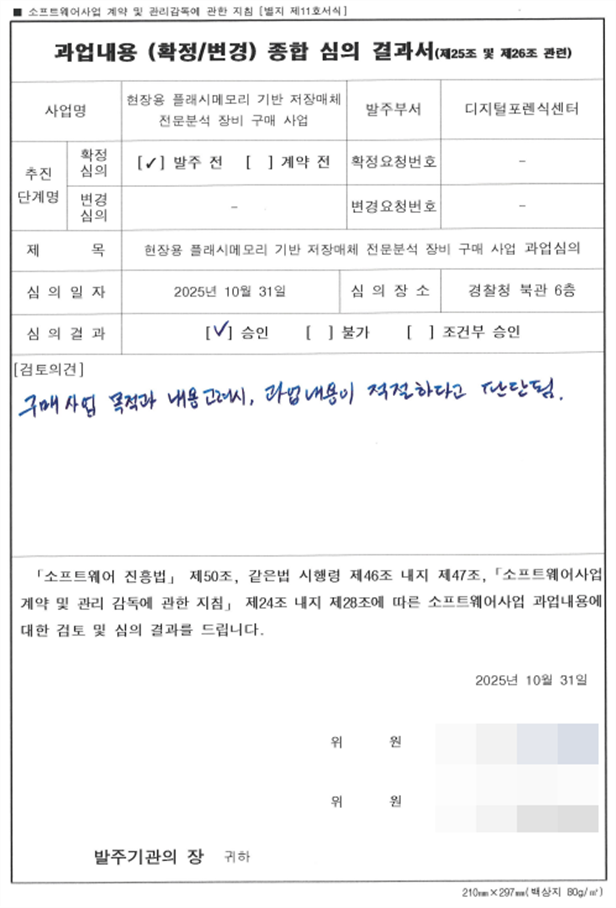 ■ 소프트웨어사업 계약 및 관리감독에 관한 지침 [별지 제11호서식]
과업내용 (확정/변경) 종합 심의 결과서(제25조 및 제26조 관련)
사업명
현장용 플래시메모리 기반 저장매체
전문분석 장비 구매 사업
발주부서
디지털포렌식센터
추진
단계명
확정
심의
[✓] 발주 전 [ ] 계약 전
확정요청번호
-
변경
심의
-
변경요청번호
-
제 목
현장용 플래시메모리 기반 저장매체 전문분석 장비 구매 사업 과업심의
심 의 일 자
2025년 10월 31일
심 의 장 소
경찰청 북관 6층
심 의 결 과
[✓] 승인 [ ] 불가 [ ] 조건부 승인
[검토의견]
구매사업 목적과 내용고려시, 과업내용이 적절하다고 판단됨.
「소프트웨어 진흥법」 제50조, 같은법 시행령 제46조 내지 제47조,「소프트웨어사업
계약 및 관리 감독에 관한 지침」 제24조 내지 제28조에 따른 소프트웨어사업 과업내용에
대한 검토 및 심의 결과를 드립니다.
2025년 10월 31일
위 원
위 원
발주기관의 장 귀하
210㎜×297㎜(백상지 80g/㎡)